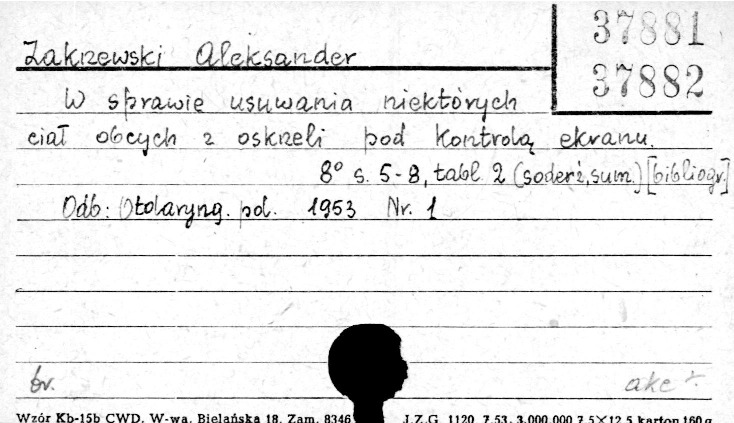 37881
37882
Zakrzewski Aleksander
W sprawie usuwania niektórych
ciał obcych z oskrzeli pod kontrolą ekranu.
8° s. 5-8, tabl. 2 (soderż, sum.) [bibliogr.]
Odb: Otolaryng. pol. 1953 Nr. 1
br. akc
Wzór Kb-15b CWD, W-wa, Bielańska 18, Zam. 8346 J.Z.G. 1120 7.53. 3.000.000 7,5×12,5 karton 160 g